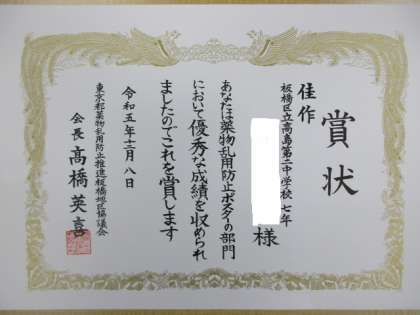 賞状
佳作
板橋区立高島第二中学校 七年
様
あなたは薬物乱用防止ポスターの部門
において優秀な成績を収められ
ましたのでこれを賞します
令和五年十二月八日
東京都薬物乱用防止推進板橋地区協議会
会長 髙橋英喜